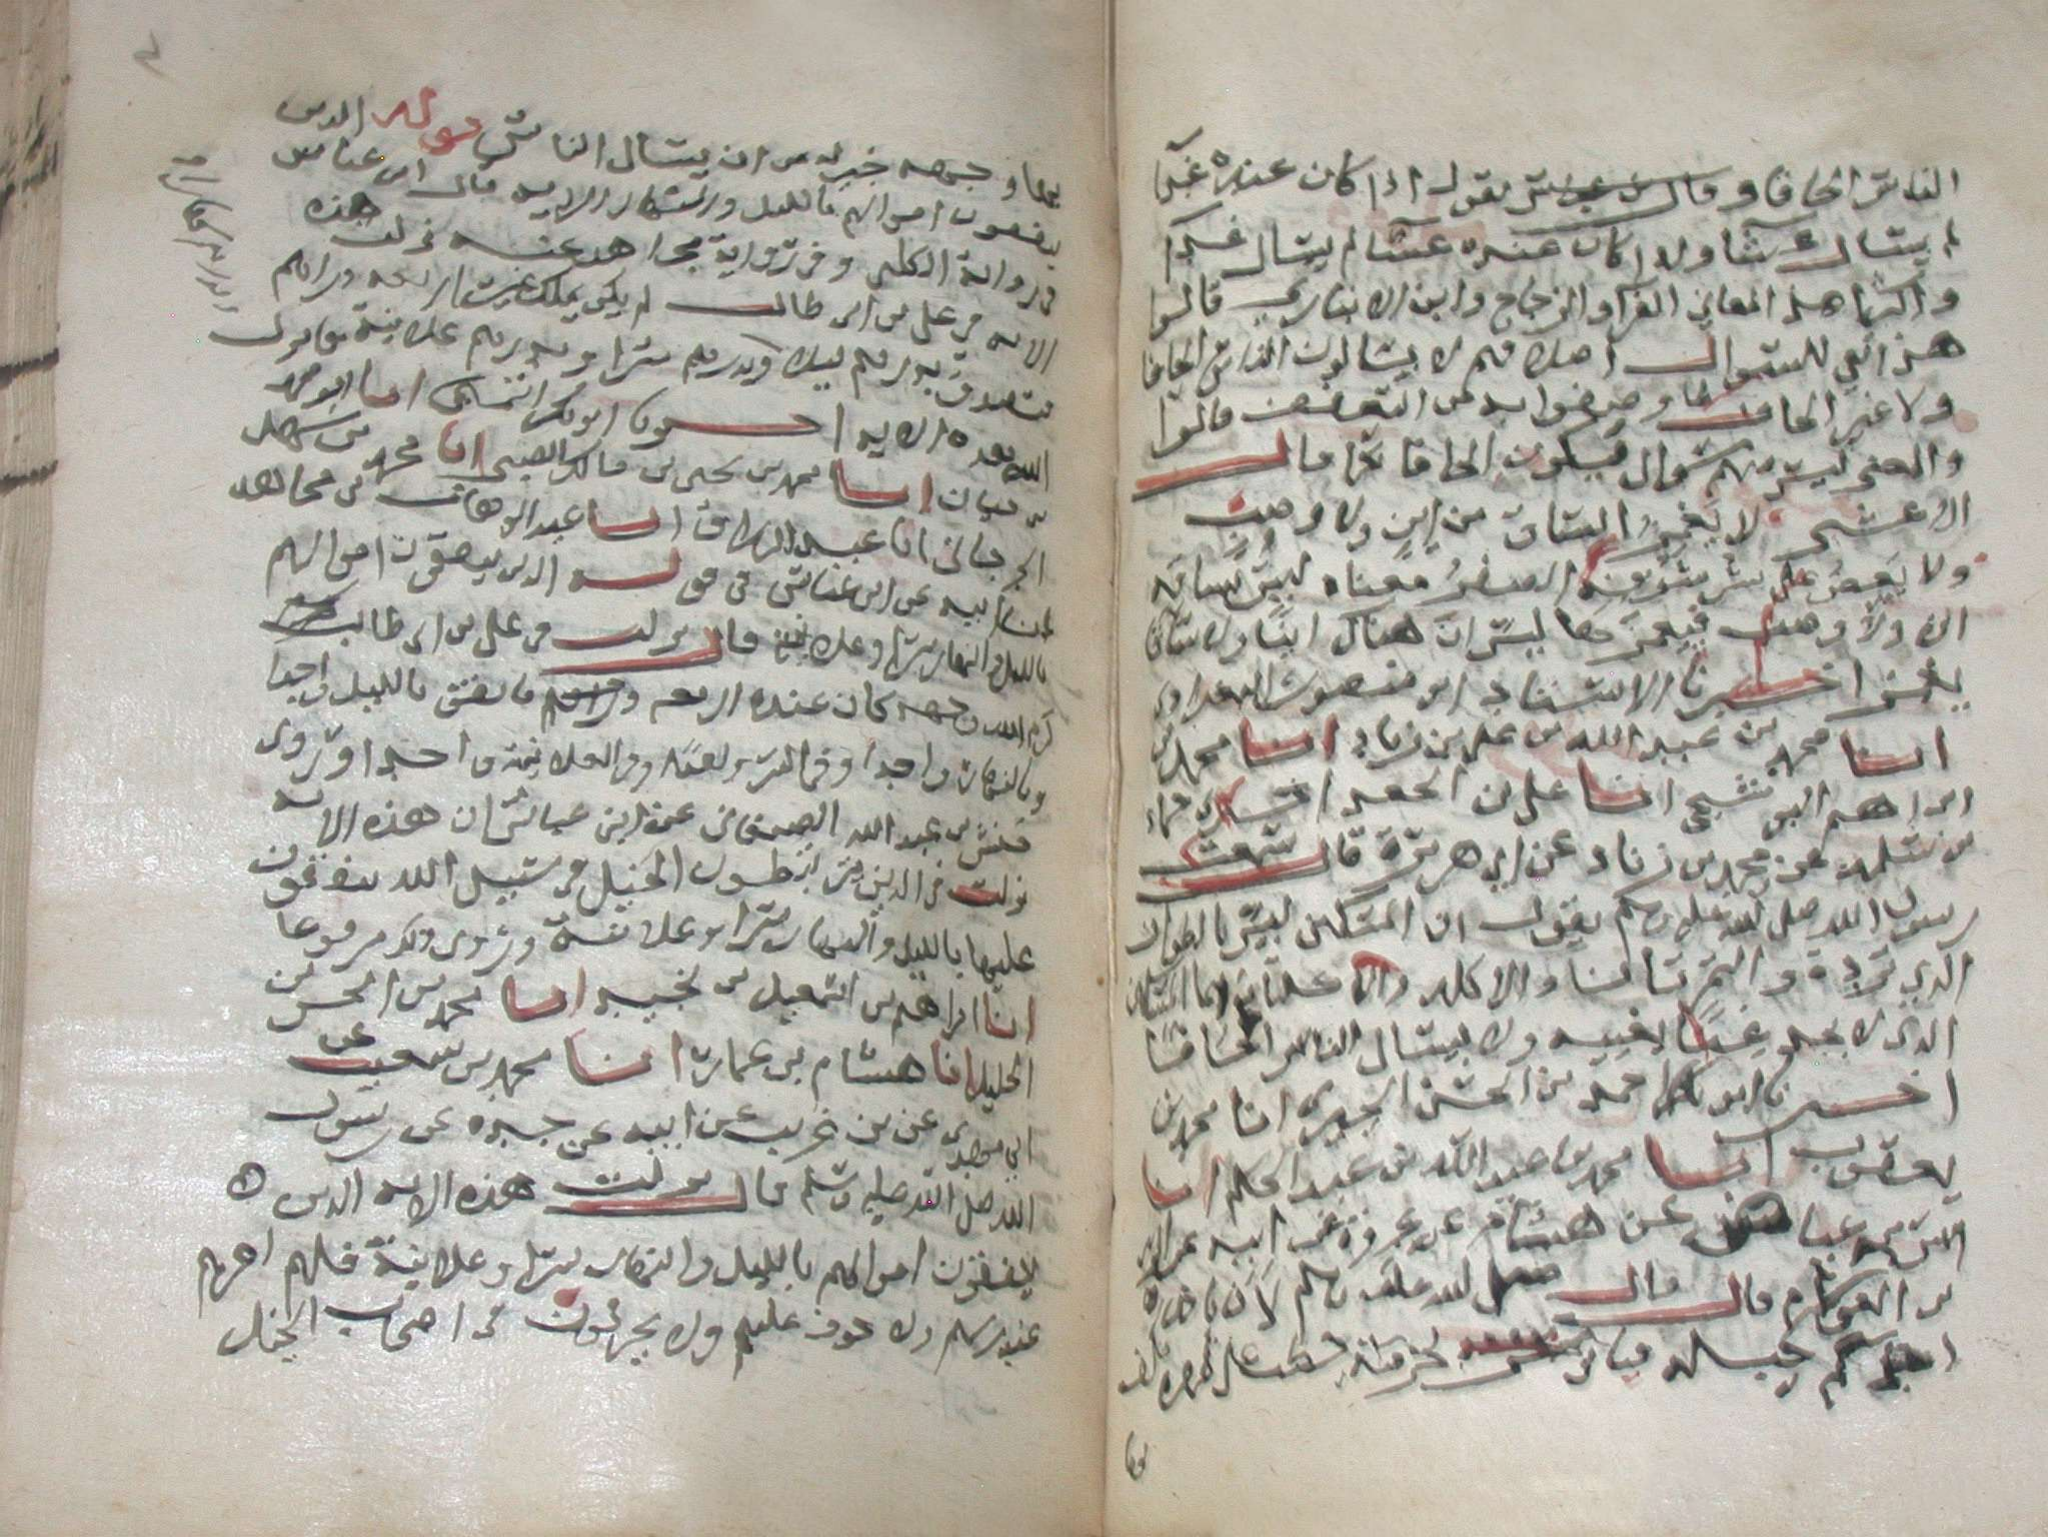 الناس الحافا وقال بن عيينة يقول اذا كان عنده غدا
لم يسال عشا واذا كان عنده عشا لم يسال غدا
واكثر اهل المعاني الفرا والزجاج وابن الانباري قالوا
هذا نفي للسوال اصلا فهم لا يسالون الناس الحافا
ولا غير الحاف وصفوا به من التعفف قالوا
والمعنى ليس منهم سوال فيكون الحافا كما قال
الاعشى لا يغمز الساق من اين ولا وصب
ولا يعض على شرسوفه الصفر معناه ليس بساقه
اين ولا وصب فيغمزها ليس ان هناك اينا ولا
يغمز اخبرنا الاستاذ ابو منصور البغدادي
انبا محمد بن عبد الله بن علي بن زياد انبا محمد بن
ابراهيم البوشنجي انبا علي بن الجعد اخبرني حماد
بن سلمة عن محمد بن زياد عن ابي هريرة قال سمعت
رسول الله صلى الله عليه وسلم يقول ان المسكين ليس بالطواف
الذي ترده التمرة والتمرتان والاكلة والاكلتان انما المسكين
الذي لا يجد غنى يغنيه ولا يسال الناس الحافا
اخبرنا ابو بكر احمد بن الحسن الحيري انا محمد بن
يعقوب انبا محمد بن عبد الله بن عبد الحكم انبا
انس بن عياض عن هشام عن عروة عن ابيه عن الزبير
بن العوام قال قال صلى الله عليه وسلم لان ياخذ
احدكم حبله فياتي بحزمة حطب على ظهره فيكف
بها وجهه خير له من ان يسال الناس قوله الذين
ينفقون اموالهم بالليل والنهار الاية قال ابن عباس
في رواية الكلبي وفي رواية مجاهد عنه نزلت هذه
الاية في علي بن ابي طالب لم يكن يملك غير اربعة دراهم
فتصدق بدرهم ليلا وبدرهم سرا وبدرهم علانية فانزل
الله هذه الاية اخبرنا ابو بكر التميمي انبا ابو محمد
بن حيان انبا محمد بن يحيى بن مالك الضبي انا محمد بن سهل
الجرجاني انا عبد الرزاق انبا عبد الوهاب بن مجاهد
عن ابيه عن ابن عباس في قوله الذين ينفقون اموالهم
بالليل والنهار سرا وعلانية قال نزلت في علي بن ابي طالب
كرم الله وجهه كان عنده اربعة دراهم فانفق بالليل واحدا
وبالنهار واحدا وفي السر واحدا وفي العلانية واحدا وروى
حنش بن عبد الله الصنعاني عن ابن عباس ان هذه الاية
نزلت في الذين يرتبطون الخيل في سبيل الله ينفقون
عليها بالليل والنهار سرا وعلانية وروى ذلك مرفوعا
انبا ابراهيم بن اسمعيل بن نجيد انبا محمد بن الحسن بن
الخليل انا هشام بن عمار انبا محمد بن شعيب عن
ابي مهدي عن بن عريب عن ابيه عن جده عن رسول
الله صلى الله عليه وسلم قال نزلت هذه الاية الذين
ينفقون اموالهم بالليل والنهار سرا وعلانية فلهم اجرهم
عند ربهم ولا خوف عليهم ولا يحزنون في اصحاب الخيل